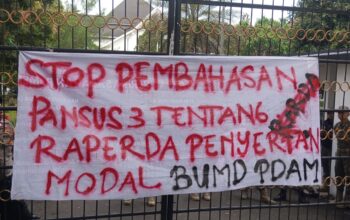 STOP PEMBAHASAN
PANSUS 3 TENTANG
RAPERDA PENYERTAAN
MODAL BUMD PDAM